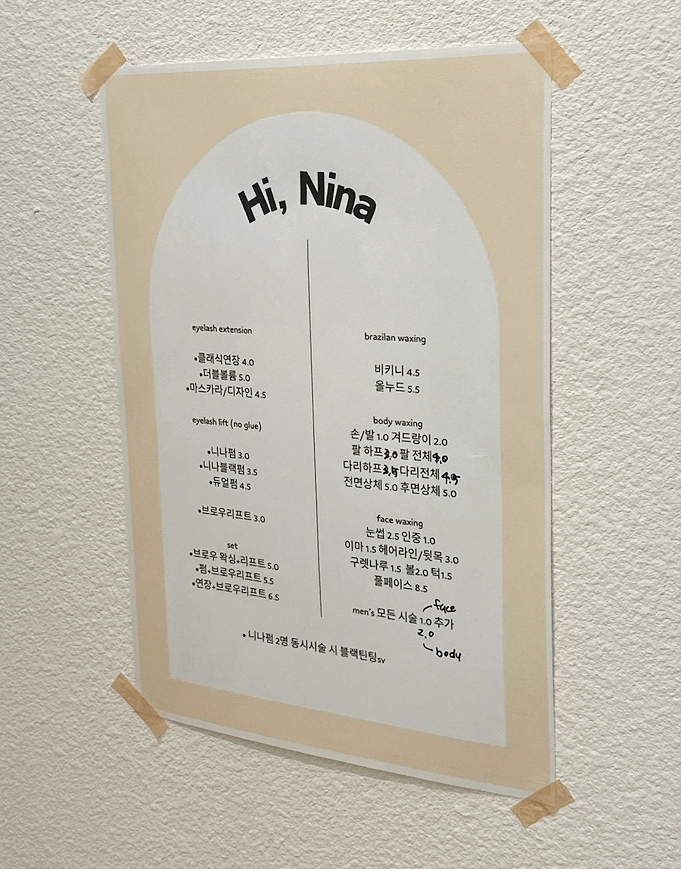 Hi, Nina
eyelash extension
•클래식연장 4.0
•더블볼륨 5.0
•마스카라/디자인 4.5
eyelash lift (no glue)
•니나펌 3.0
•니나블랙펌 3.5
•듀얼펌 4.5
•브로우리프트 3.0
set
•브로우 왁싱+리프트 5.0
•펌+브로우리프트 5.5
•연장+브로우리프트 6.5
brazilan waxing
비키니 4.5
올누드 5.5
body waxing
손/발 1.0 겨드랑이 2.0
팔 하프 3.0 팔 전체 4.0
다리하프 3.5 다리전체 4.5
전면상체 5.0 후면상체 5.0
face waxing
눈썹 2.5 인중 1.0
이마 1.5 헤어라인/뒷목 3.0
구렛나루 1.5 볼2.0 턱1.5
풀페이스 8.5
face
men's 모든 시술 1.0 추가
2.0
body
• 니나펌 2명 동시시술 시 블랙틴팅sv